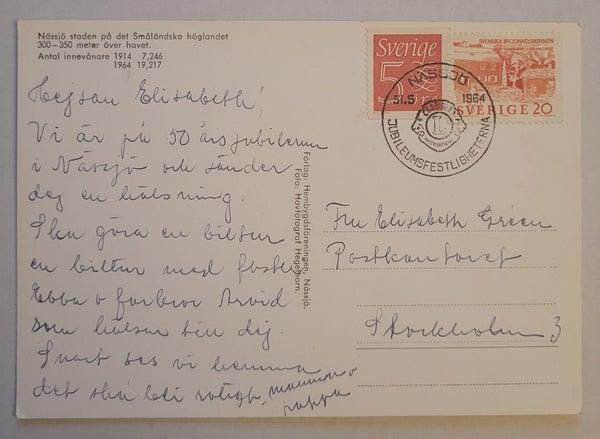 Nässjö staden på det Småländska höglandet
300–350 meter över havet.
Antal innevånare 1914 7,246
1964 19,217
Hejsan Elisabeth!
Vi är på 50 årsjubileum
i Nässjö och sänder
dej en hälsning.
Ska göra en biltur
en biltur med faster
Ebba o farbror Arvid
som hälsar till dej.
Snart ses vi hemma
det ska bli roligt. mamma o
pappa
Förlag: Hembygdsföreningen, Nässjö.
Foto: Hovfotograf Hegethorn.
Sverige
5
öre
SVENSKA BYGGNADSMINNEN
SVERIGE 20
NÄSSJÖ
31.5 1964
JUBILEUMSFESTLIGHETERNA
Fru Elisabeth Green
Postkontoret
Stockholm 3